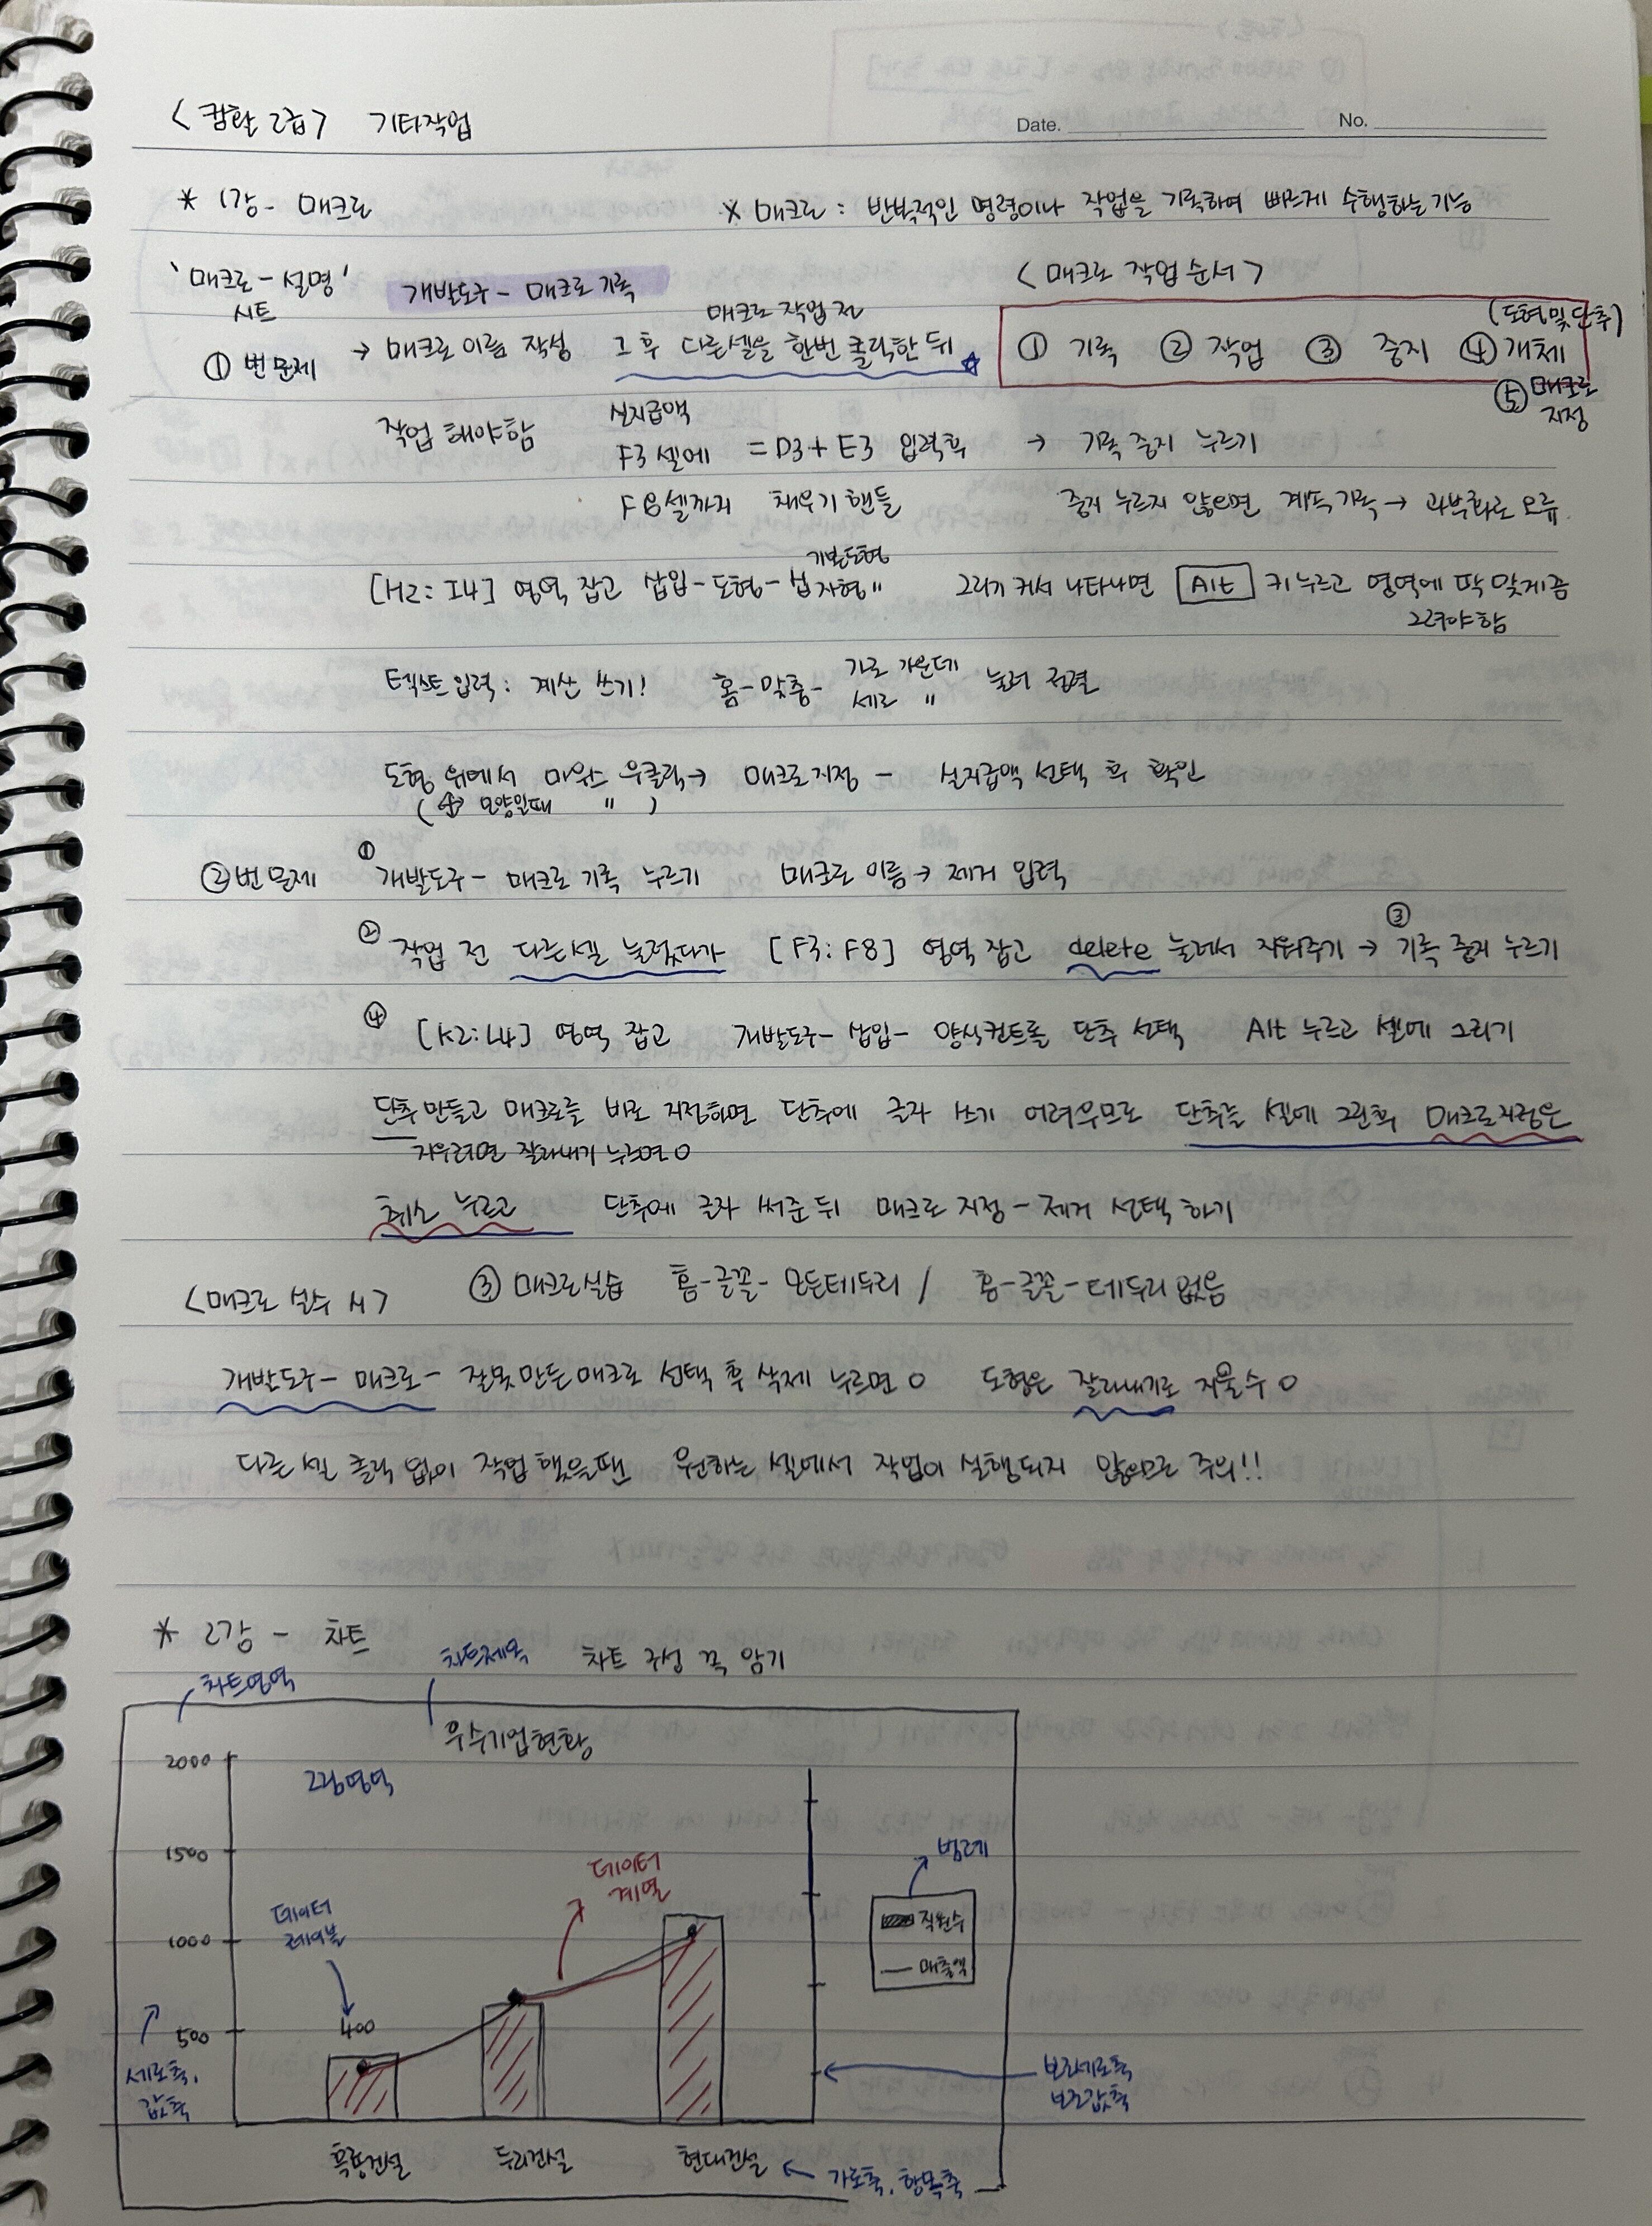 <컴활 2급> 기타작업
Date. No.
* 1강 - 매크로
※ 매크로 : 반복적인 명령이나 작업을 기록하여 빠르게 수행하는 기능
'매크로 - 설명' 시트
개발도구 - 매크로 기록
<매크로 작업 순서>
① 기록 ② 작업 ③ 중지 ④ 개체 (도형 및 단추)
⑤ 매크로 지정
① 번 문제 → 매크로 이름 작성 그 후 매크로 작업 전 다른셀을 한번 클릭한 뒤 ☆
작업 해야함
실지급액
F3 셀에 = D3 + E3 입력후 → 기록 중지 누르기
F8셀까지 채우기 핸들 중지 누르지 않으면 계속 기록 → 과부화로 오류
[H2 : I4] 영역 잡고 삽입 - 도형 - 기본도형 십자형" 그리기 커서 나타나면 Alt 키 누르고 영역에 딱 맞게끔
그려야 함
텍스트 입력 : 계산 쓰기! 홈 - 맞춤 - 가로 가운데 눌러 정렬
세로 "
도형 위에서 마우스 우클릭 → 매크로 지정 - 실지급액 선택 후 확인
( 모양일때 " )
② 번 문제 ① 개발도구 - 매크로 기록 누르기 매크로 이름 → 제거 입력
② 작업 전 다른셀 눌렀다가 [F3 : F8] 영역 잡고 delete 눌러서 지워주기 → ③ 기록 중지 누르기
④ [K2:L4] 영역 잡고 개발도구 - 삽입 - 양식컨트롤 단추 선택 Alt 누르고 셀에 그리기
단추 만들고 매크로를 바로 지정하면 단추에 글자 쓰기 어려우므로 단추를 셀에 그린후 매크로지정은
지우려면 잘라내기 누르면 O
취소 누르고 단추에 글자 써준 뒤 매크로 지정 - 제거 선택 하기
③ 매크로실습 홈 - 글꼴 - 모든테두리 / 홈 - 글꼴 - 테두리없음
<매크로 실수 시>
개발도구 - 매크로 - 잘못 만든 매크로 선택 후 삭제 누르면 O 도형은 잘라내기로 지울수 O
다른 셀 클릭 없이 작업 했을땐 원하는 셀에서 작업이 실행되지 않으므로 주의!!
* 2강 - 차트
차트 구성 꼭 암기
차트영역
차트제목
우수기업현황
2000
그림영역
1500
범례
데이터 계열
데이터 레이블
직원수
매출액
1000
400
500
세로축, 값축
보조세로축
보조값축
흑룡건설 두리건설 현대건설
가로축, 항목축